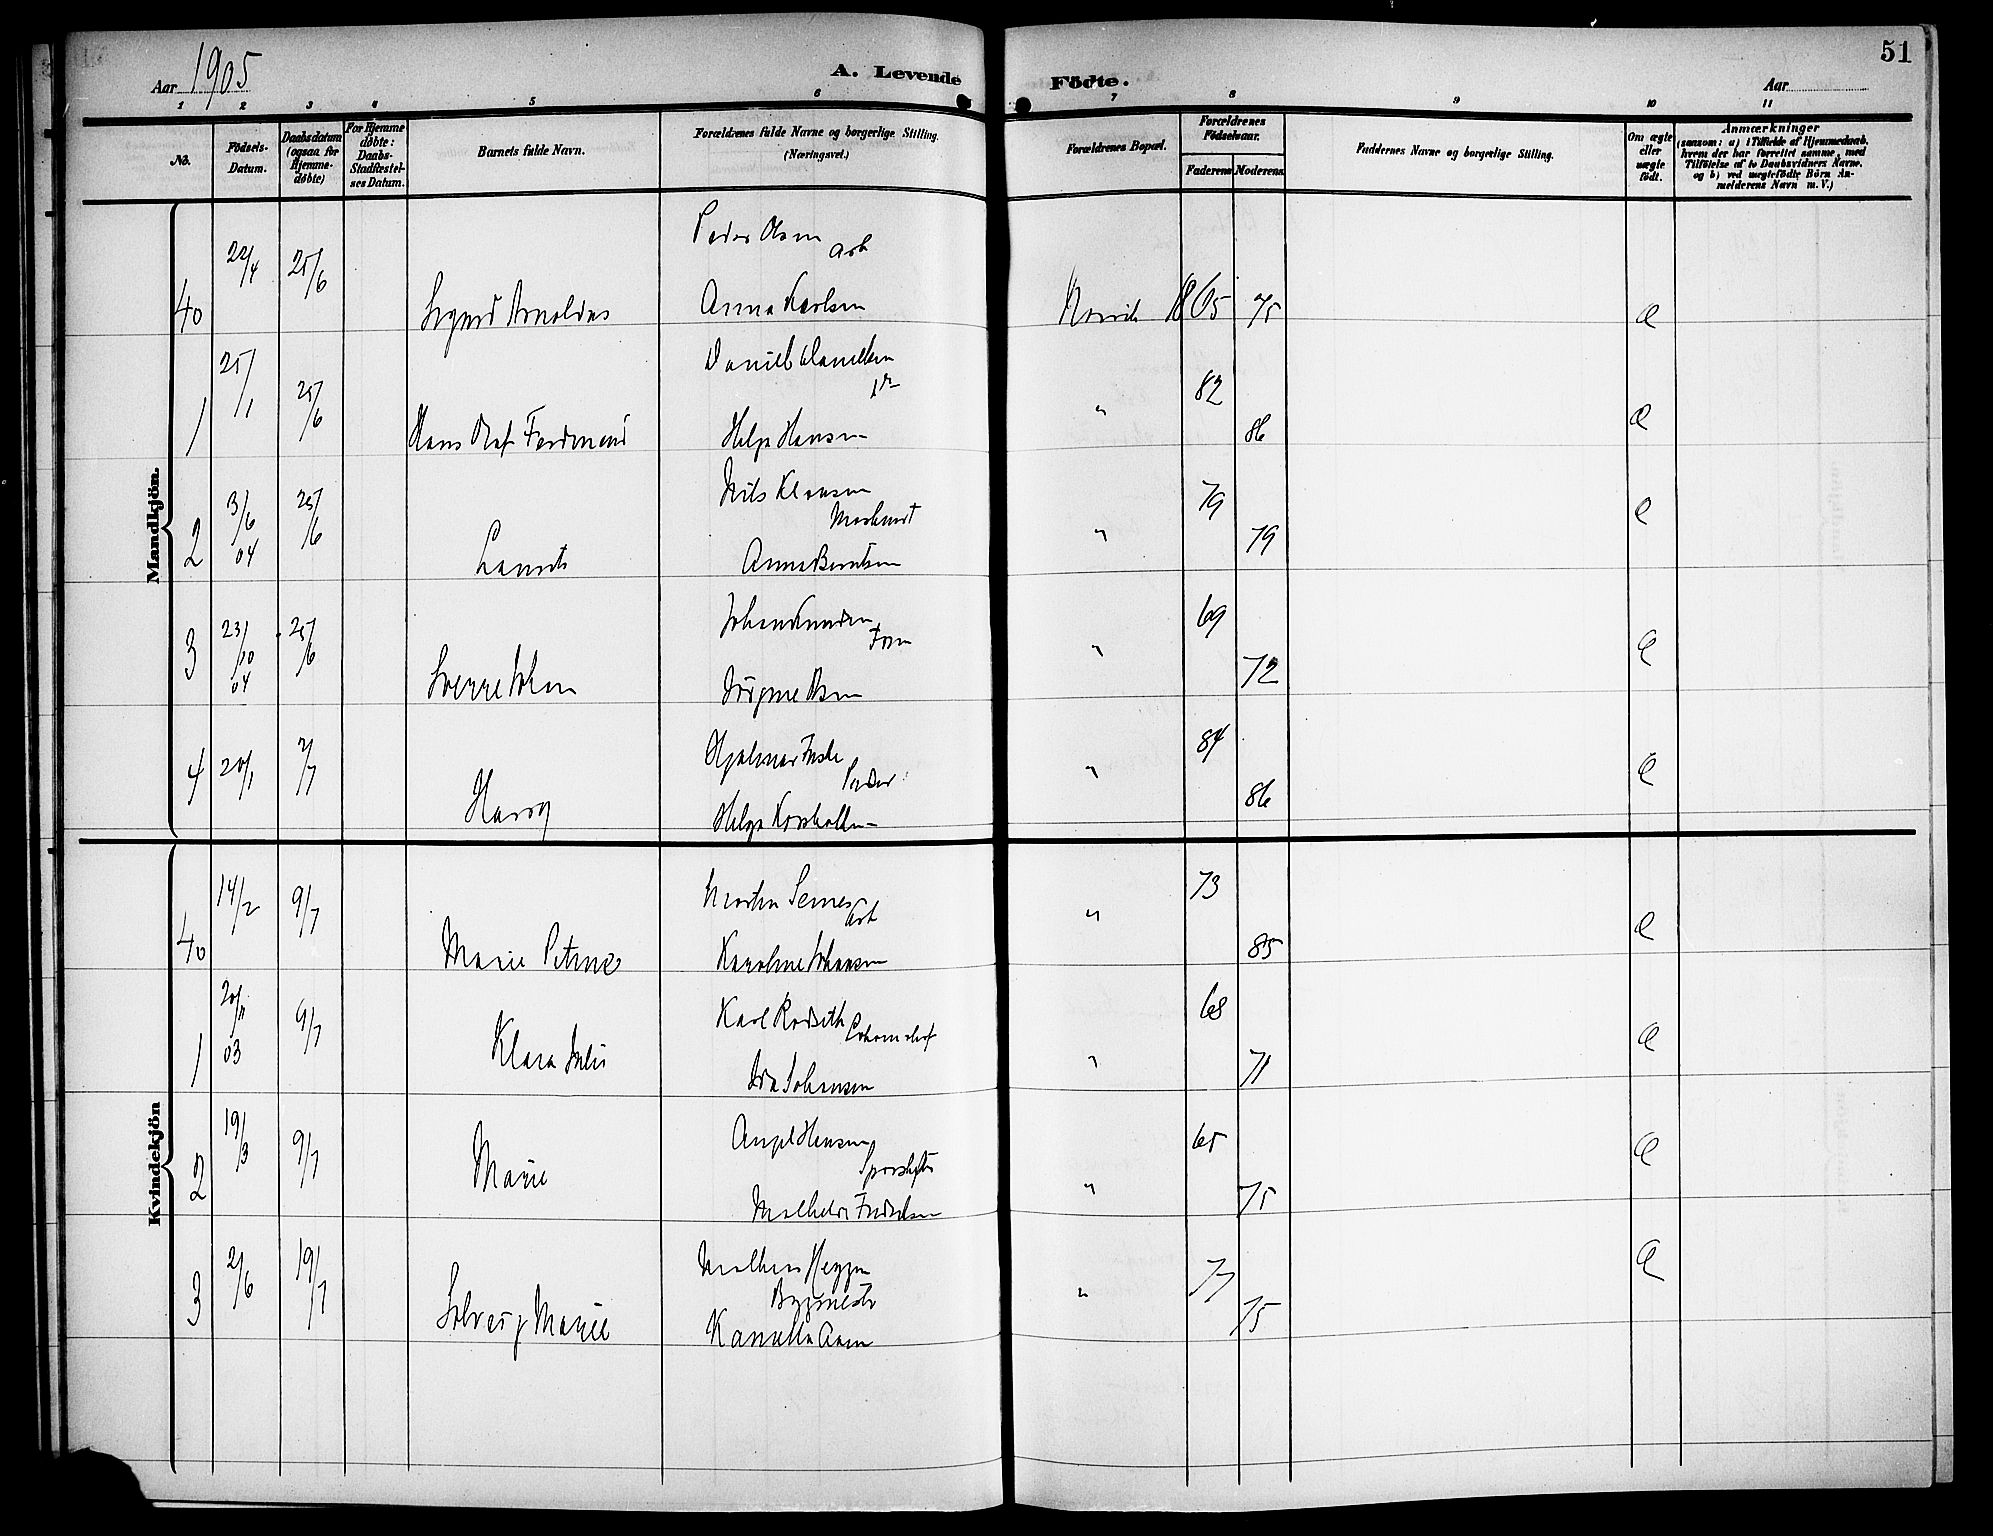 51
Aar 1905
A. Levende Födte.
Aar
1 2 3 4 5 6 7 8 9 10 11
No.
Födsels-
Datum.
Daabsdatum
(ogsaa for
Hjemme-
döbte)
For Hjemme
döbte:
Daabs-
Stadfæstel-
ses Datum.
Barnets fulde Navn.
Forældrenes fulde Navne og borgerlige Stilling.
(Næringsvei.)
Forældrenes Bopæl.
Forældrenes
Födselsaar.
Faderens
Moderens
Faddernes Navne og borgerlige Stilling.
Om ægte
eller
uægte
födt.
Anmærkninger
(saasom: a) i Tilfælde af Hjemmedaab,
hvem der har forrettet samme, med
Tilföielse af to Daabsvidners Navne.
og b) ved uægtefödte Börn An-
melderens Navn m. V.)
Mandkjön.
Peder Olsen
Arb
40 22/4 25/6 Sigurd Arnoldus Anna Karlsen Narvik 1865 75 e
Daniel Danielsen
1 25/1 25/6 Hans Olaf Ferdinand Helga Hansen " 82 86 e
Nils Klausen
2 3/6 04 25/6 Anna Berntsen " 79 79 e
Johan Knudsen
Form
3 23/10 04 25/6 Sverre Johan Olsen " 69 72 e
Hjalmar
4 20/1 2/7 Harry Helga " 84 86 e
Kvindekjön
Martin
Arb
40 14/2 9/7 Marie Petrine Karoline Johansen " 73 85 e
Karl Rødseth
1 20/11 03 9/7 Klara Julie Ida Johansen " 68 71 e
Hansen
2 19/3 9/7 Marie " 65 75 e
Heggen
Bygmester
3 2/6 19/7 Solveig Marie " 77 75 e